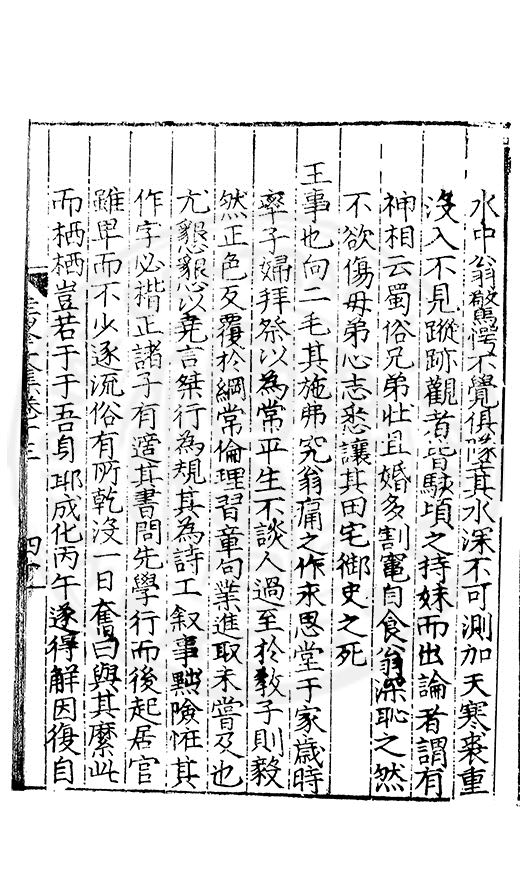 水中翁驚愕不覺俱墜其水深不可測加天寒裘重
沒入不見蹤跡觀者皆駭頃之持妹而出論者謂有
神相云蜀俗兄弟壯且婚多割竈自食翁深恥之然
不欲傷母弟心志悉讓其田宅御史之死
王事也向二毛其施弗究翁痛之作永思堂于家歲時
率子婦拜祭以為常平生不談人過至於教子則毅
然正色反覆於綱常倫理習章句業進取未嘗及也
尤懇懇以堯言桀行為規其為詩工敘事黜險怪其
作字必楷正諸子有適其書問先學行而後起居官
雖卑而不少逐流俗有所乾沒一日奮曰與其縻此
而栖栖豈若于于吾身耶成化丙午遂得解因復自
文集卷十三
四